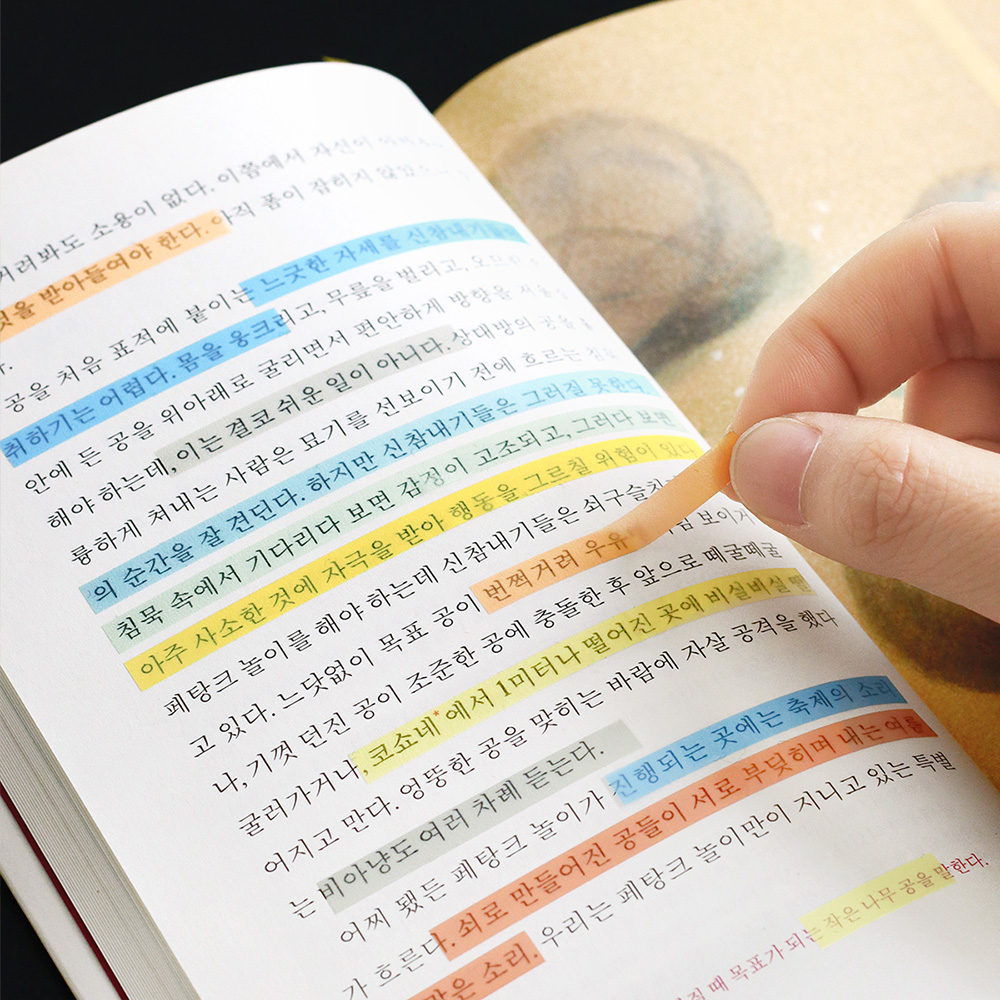 거려봐도 소용이 없다. 이쯤에서 자신이
것을 받아들여야 한다. 아직 폼이 잡히지 않았
공을 처음 표적에 붙이는 느긋한 자세를 신참내기들이
취하기는 어렵다. 몸을 웅크리고, 무릎을 벌리고, 오므린 손
안에 든 공을 위아래로 굴리면서 편안하게 방향을 저울질
해야 하는데, 이는 결코 쉬운 일이 아니다. 상대방의 공을
륭하게 쳐내는 사람은 묘기를 선보이기 전에 흐르는 침묵
의 순간을 잘 견딘다. 하지만 신참내기들은 그러질 못한다.
침묵 속에서 기다리다 보면 감정이 고조되고, 그러다 보면
아주 사소한 것에 자극을 받아 행동을 그르칠 위험이 있다.
페탕크 놀이를 해야 하는데 신참내기들은 쇠구슬치
고 있다. 느닷없이 목표 공이 번쩍거려 우유 보이거
나, 기껏 던진 공이 조준한 공에 충돌한 후 앞으로 떼굴떼굴
굴러가거나, 코쇼네*에서 1미터나 떨어진 곳에 비실비실 떨
어지고 만다. 엉뚱한 공을 맞히는 바람에 자살 공격을 했다
는 비아냥도 여러 차례 듣는다.
어찌 됐든 페탕크 놀이가 진행되는 곳에는 축제의 소리
가 흐른다. 쇠로 만들어진 공들이 서로 부딪히며 내는 여름
같은 소리. 우리는 페탕크 놀이만이 지니고 있는 특별
질 때 목표가 되는 작은 나무 공을 말한다.